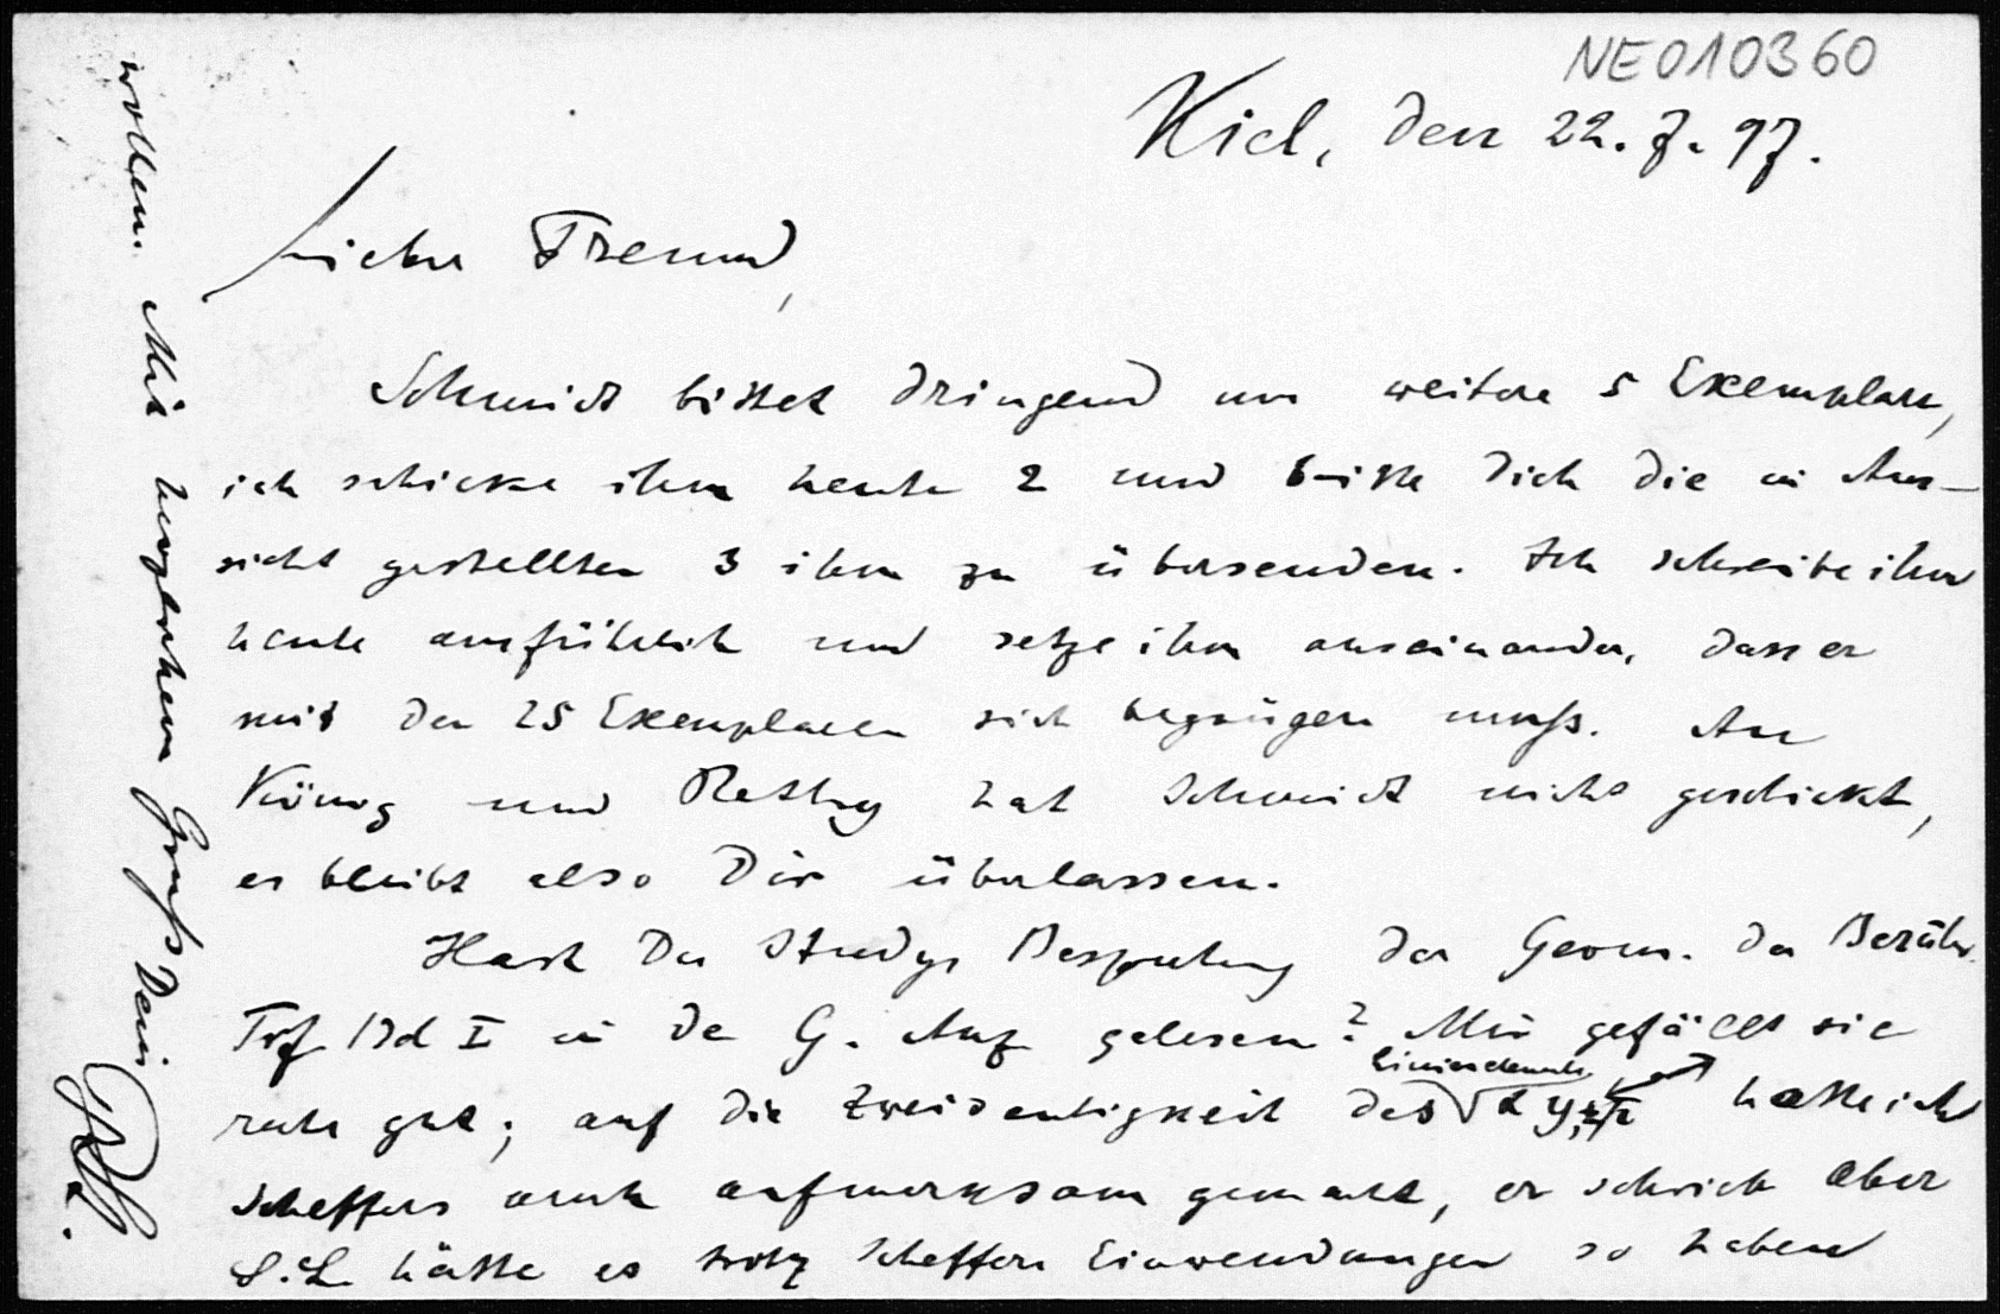 NE010360
Kiel, den 22.7.97.
Lieber Freund,
Schmidt bittet dringend um weitere 5 Exemplare,
ich schicke ihm heute 2 und bitte Dich die in Aus-
sicht gestellten 3 ihm zu übersenden. Ich schreibe ihm
heute ausführlich und setze ihm auseinander, dass er
mit den 25 Exemplaren sich begnügen muß. An
König und Réthy hat Schmidt nicht geschickt,
es bleibt also Dir überlassen.
Hast Du Studys Besprechung der Geom. der Berühr.
Trf Bd I in der G. Anz gelesen? Mir gefällt sie
recht gut; auf die Zweideutigkeit des Linienelements x y, hatte ich
Scheffers auch aufmerksam gemacht, er schrieb aber
S.L. hätte es trotz Scheffers Einwendungen so haben
wollen. Mit herzlichem Gruß Dein